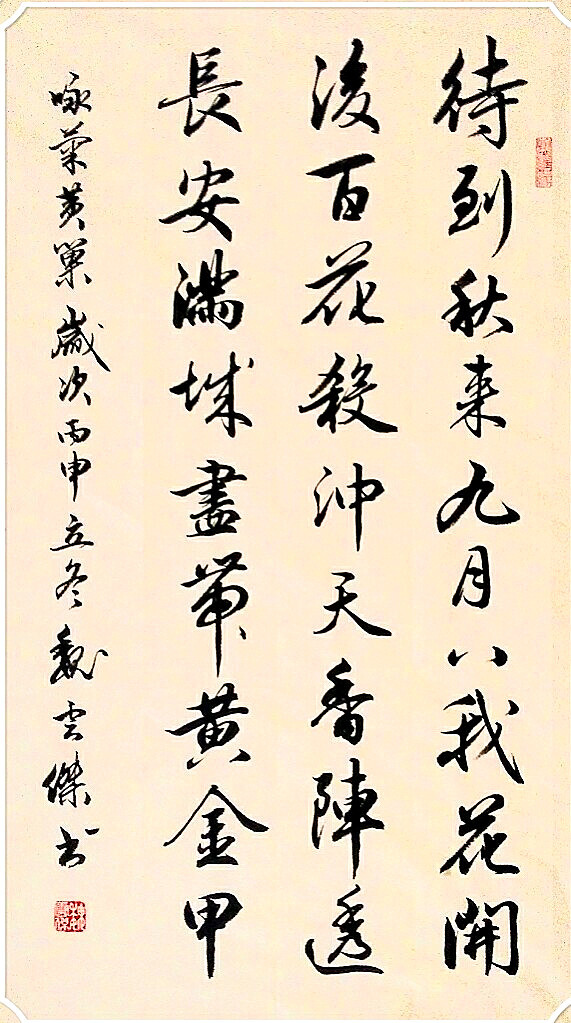 待到秋来九月八我花開
後百花殺沖天香陣透
長安滿城盡帶黄金甲
咏菊黄巢歲次丙申立冬魏雲傑书